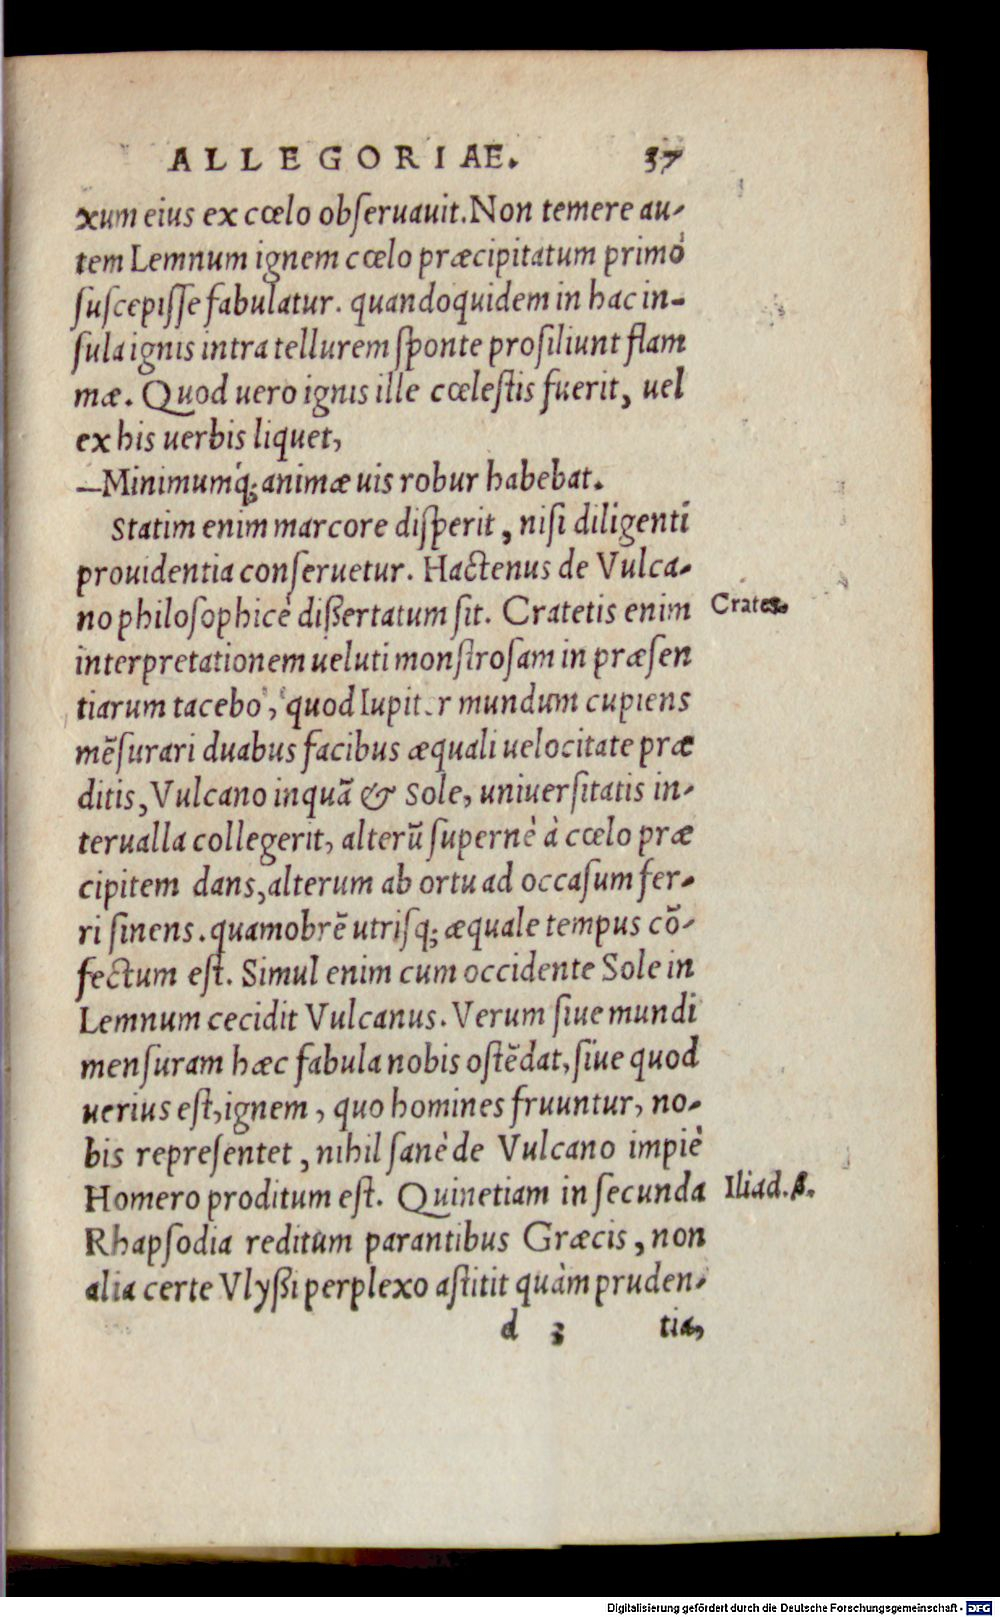 ALLEGORIAE. 37
xum eius ex cœlo obſeruauit. Non temere au-
tem Lemnum ignem cœlo præcipitatum primò
ſuſcepiſſe fabulatur. quandoquidem in hac in-
ſula ignis intra tellurem ſponte proſiliunt flam
mæ. Quod uero ignis ille cœleſtis fuerit, uel
ex his uerbis liquet,
—Minimumq́; animæ uis robur habebat.
Statim enim marcore diſperit, niſi diligenti
prouidentia conſeruetur. Hactenus de Vulca-
no philoſophicè dißertatum ſit. Cratetis enim
Crates.
interpretationem ueluti monſtroſam in præſen
tiarum tacebo, quod Iupiter mundum cupiens
mēſurari duabus facibus æquali uelocitate præ
ditis, Vulcano inquā & Sole, uniuerſitatis in-
terualla collegerit, alterū ſupernè à cœlo præ
cipitem dans, alterum ab ortu ad occaſum fer-
ri ſinens. quamobrē utriſq; æquale tempus cō-
fectum eſt. Simul enim cum occidente Sole in
Lemnum cecidit Vulcanus. Verum ſiue mundi
menſuram hæc fabula nobis oſtēdat, ſiue quod
uerius eſt, ignem, quo homines fruuntur, no-
bis repreſentet, nihil ſanè de Vulcano impiè
Homero proditum eſt. Quinetiam in ſecunda
Iliad. β.
Rhapſodia reditum parantibus Græcis, non
alia certe Vlyßi perplexo aſtitit quàm pruden-
d 3 tia,
Digitalisierung gefördert durch die Deutsche Forschungsgemeinschaft - DFG